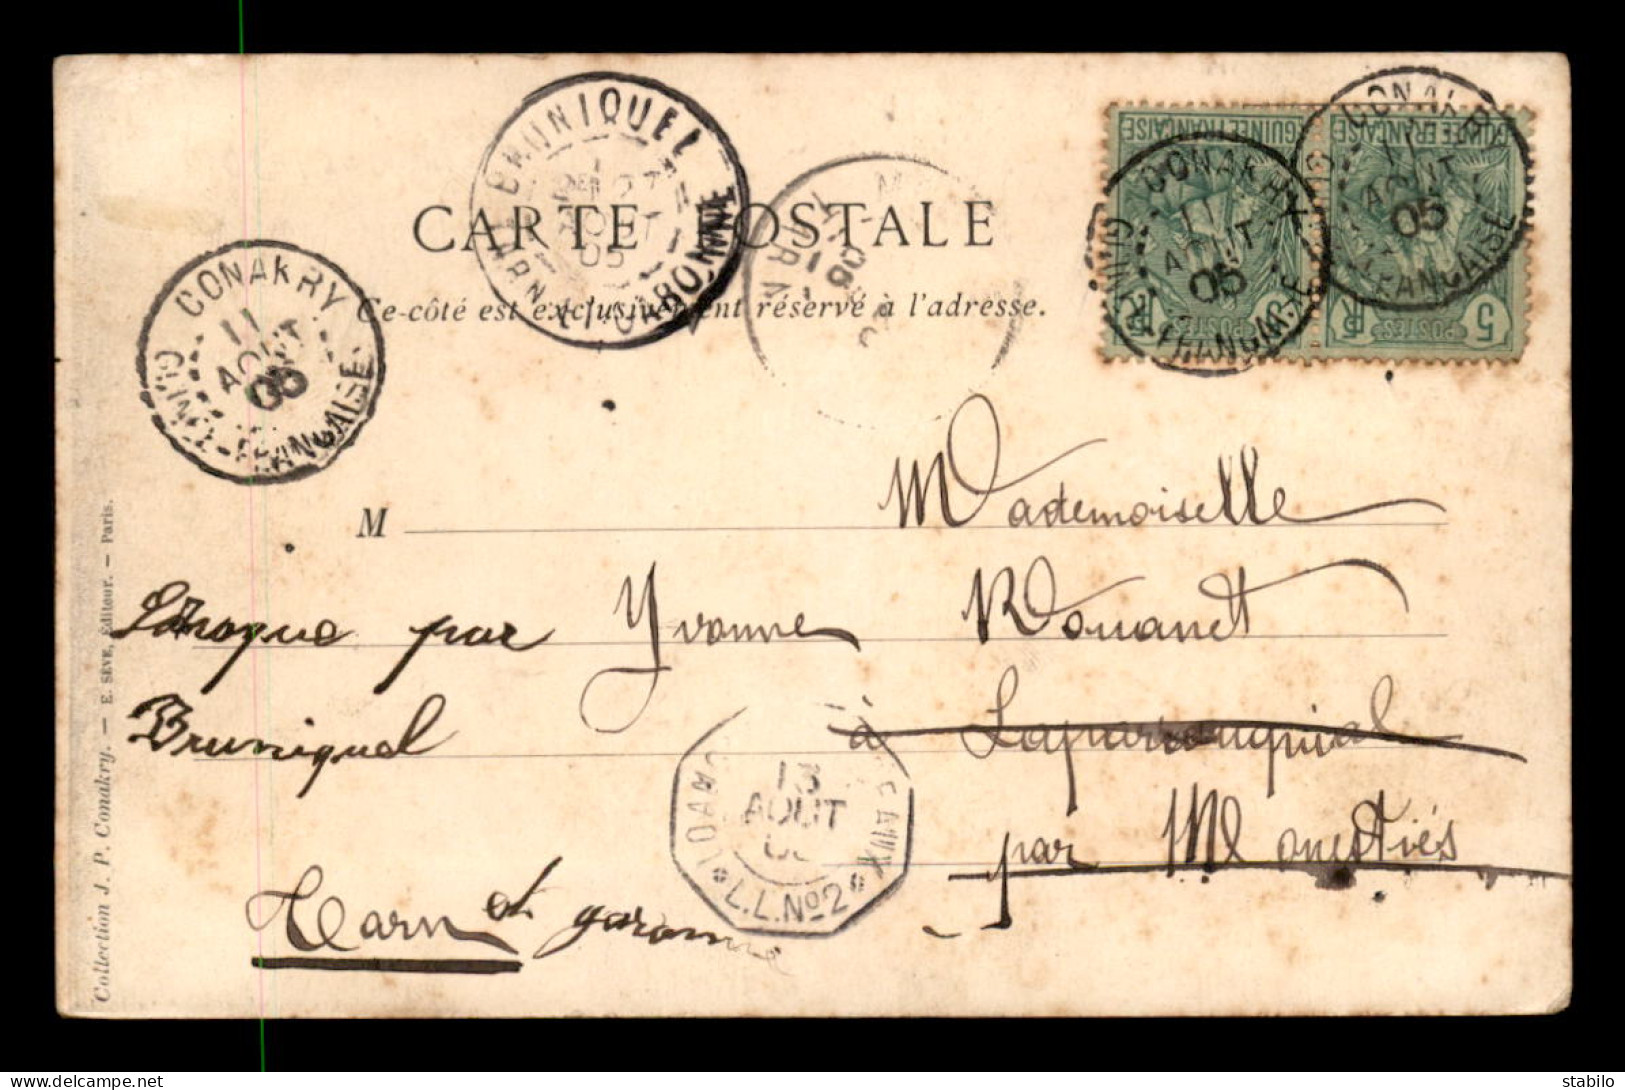 CARTE POSTALE
Ce-côté est exclusivement réservé à l'adresse.
CONAKRY
11
AOUT
05
GUINÉE-FRANÇAISE
BRUNIQUEL
27
AOUT
05
TARN-ET-GARONNE
GUINÉE FRANÇAISE
POSTES
5
GUINÉE FRANÇAISE
POSTES
5
CONAKRY
11
AOUT
05
GUINÉE-FRANÇAISE
CONAKRY
11
AOUT
05
GUINÉE-FRANÇAISE
M Mademoiselle
par Yvonne Rouanet
Bruniquel à
par Monestiés
Tarn et garonne
13
AOUT
L.L.Nº2
Collection J. P. Conakry. — E. SEVE, Editeur. — Paris.
stabilo